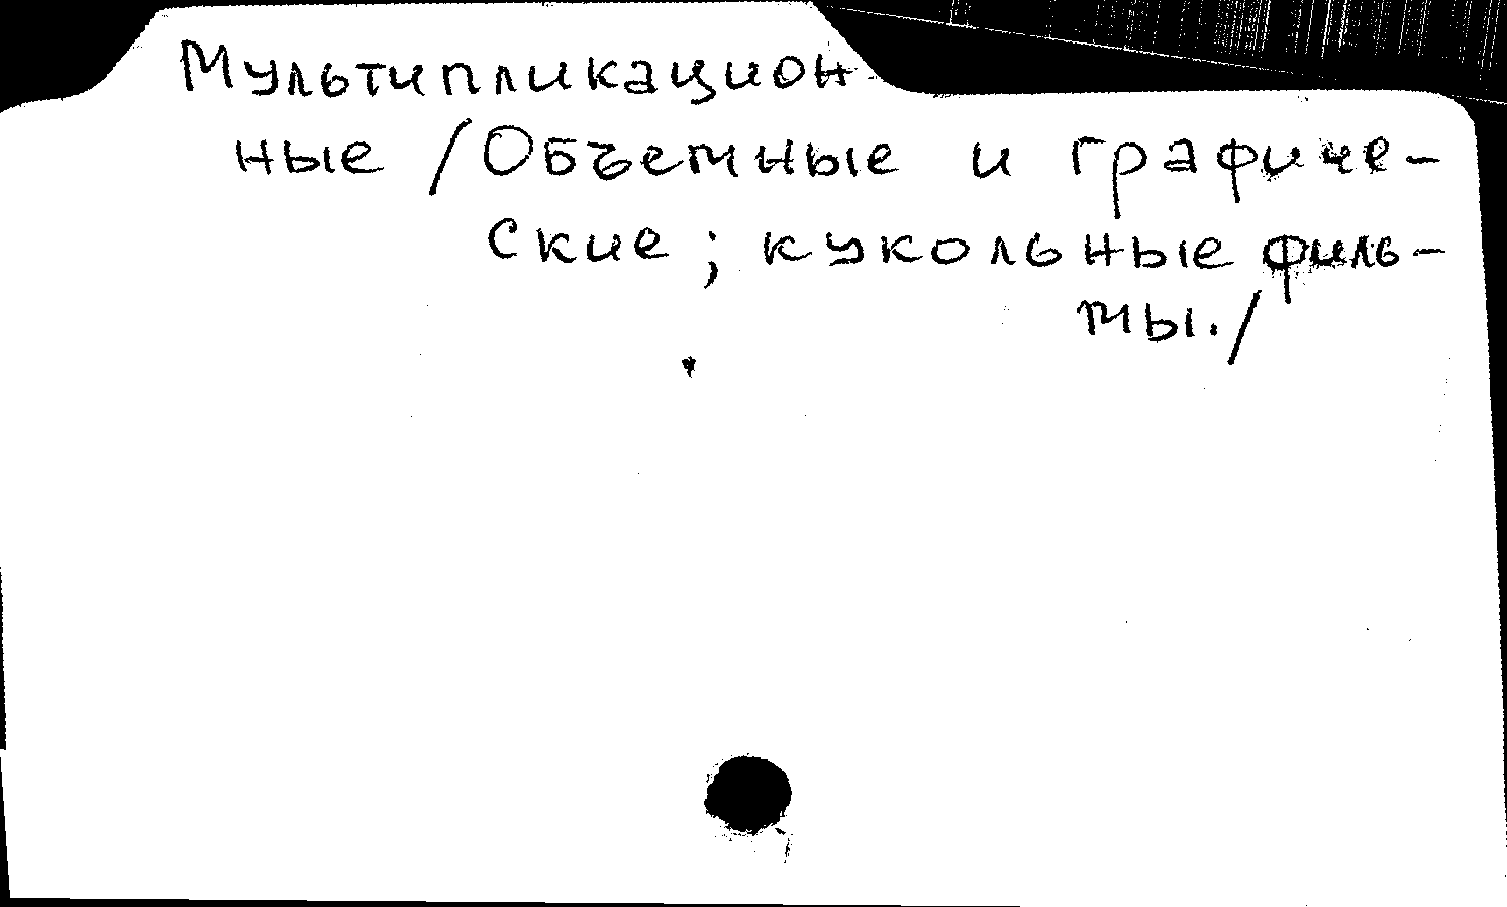 Мультипликацион-
ные /Объемные и графиче-
ские; кукольные филь-
мы./